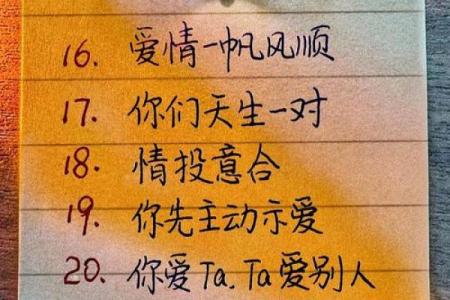 16. 爱情一帆风顺
17. 你们天生一对
18. 情投意合
19. 你先主动示爱
20. 你爱Ta,Ta爱别人